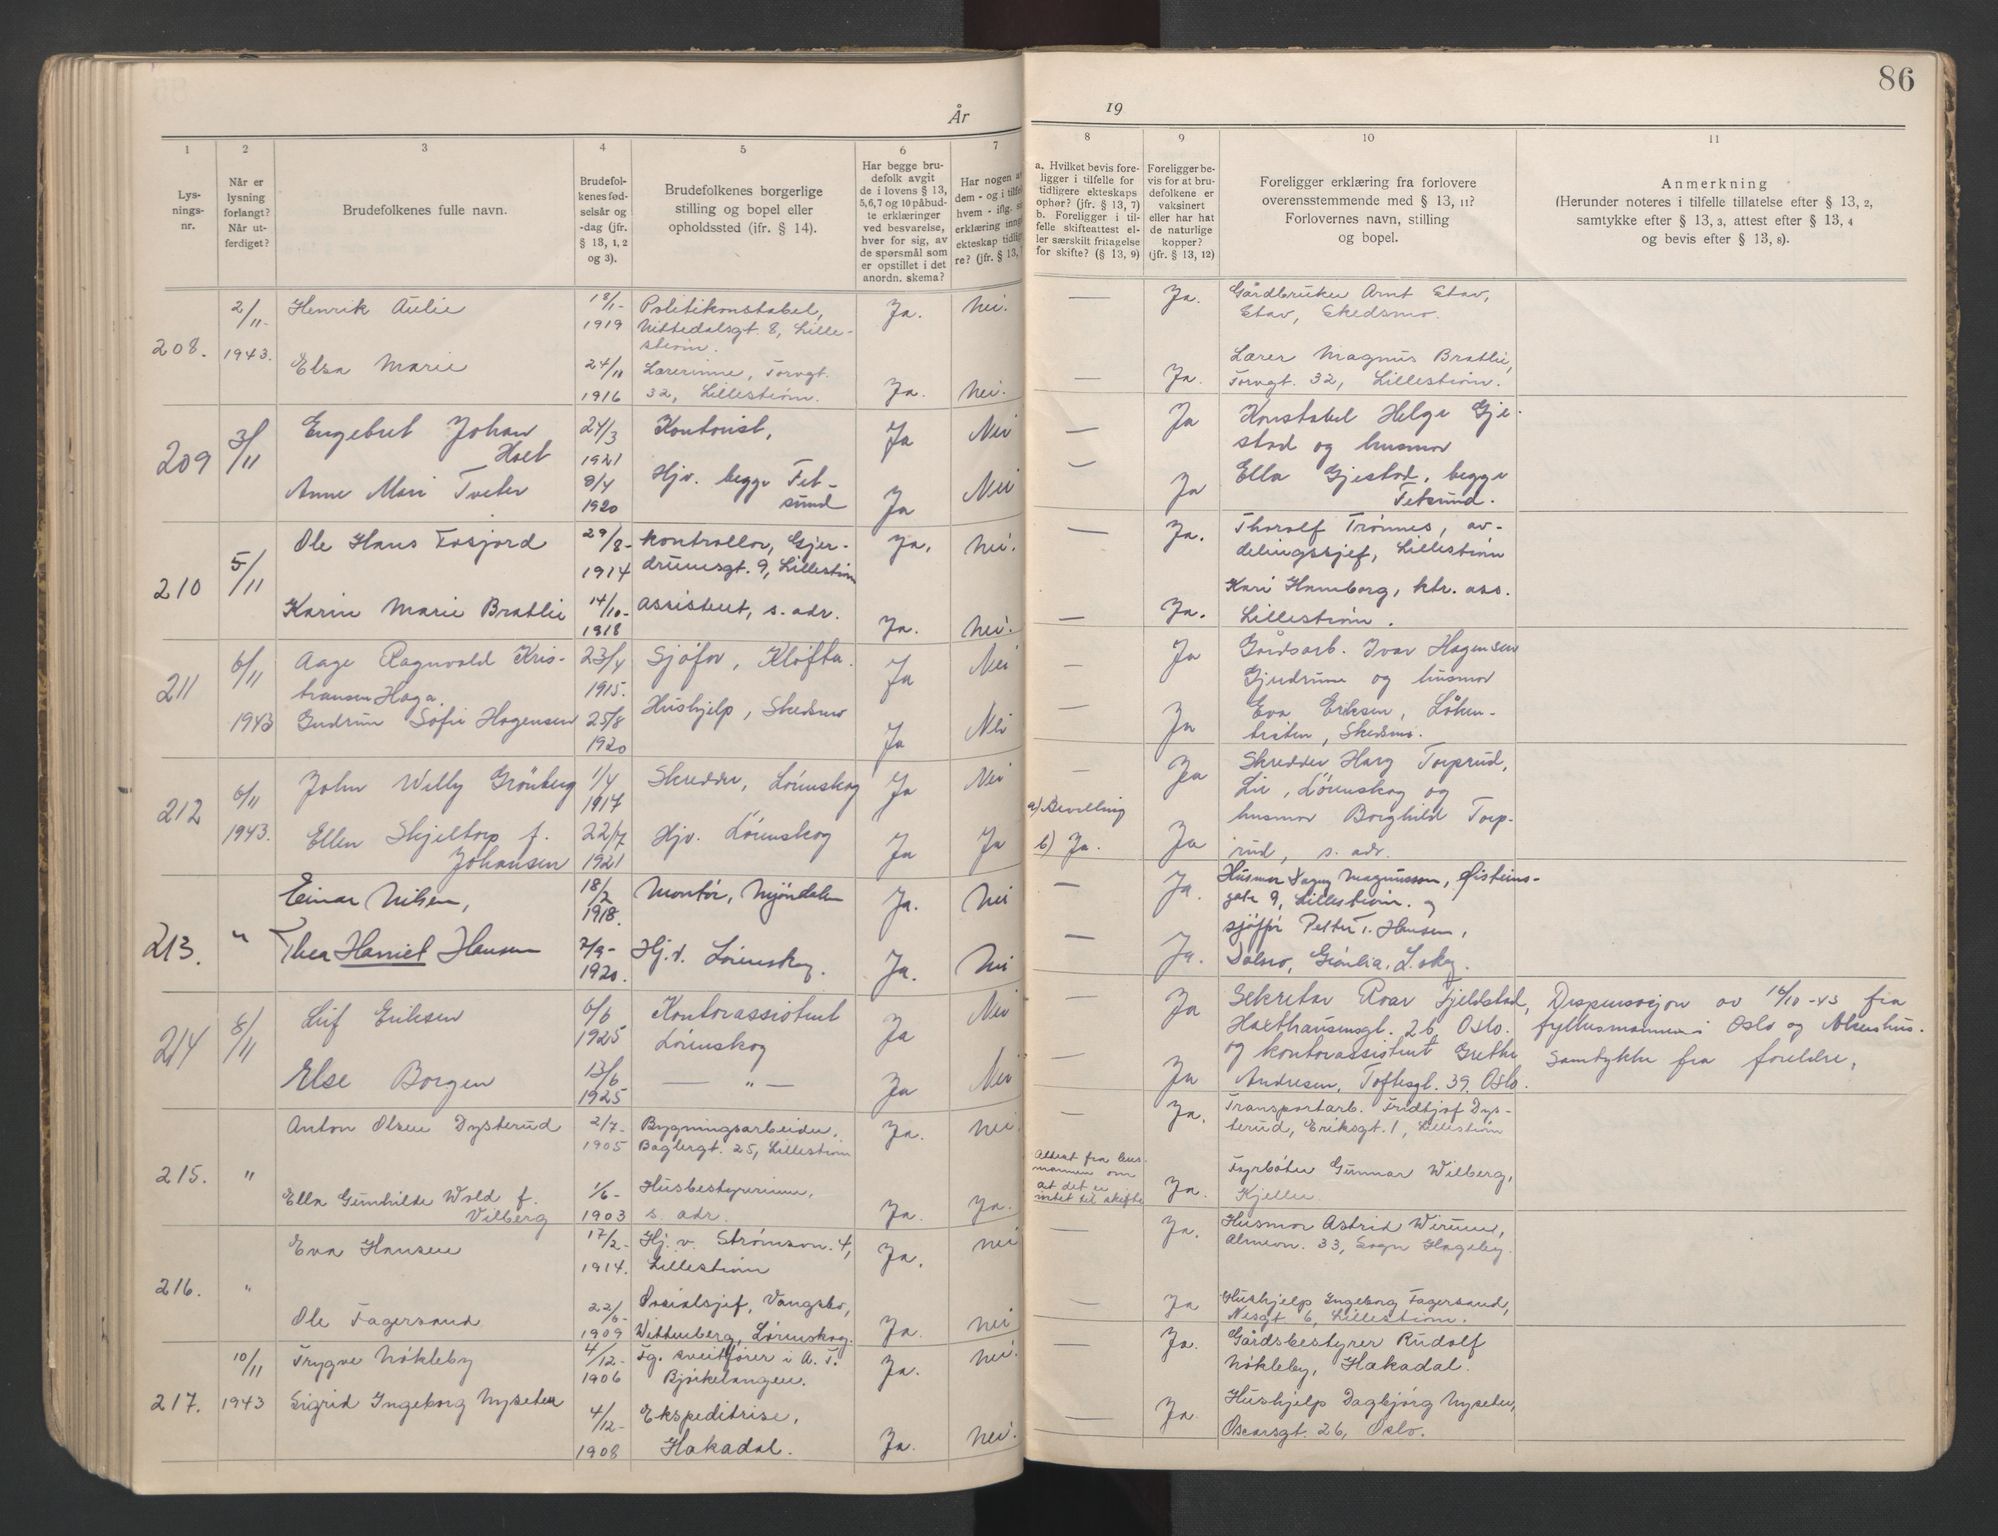 86
År
19
1
2
3
4
5
6
7
8
9
10
11
Lys-
nings-
nr.
Når er
lysning
forlangt?
Når ut-
ferdiget?
Brudefolkenes fulle navn.
Brudefol-
kenes fød-
selsår og
-dag (jfr.
§ 13, 1, 2
og 3).
Brudefolkenes borgerlige
stilling og bopel eller
opholdssted (jfr. § 14).
Har begge bru-
defolk avgit
de i lovens § 13,
5,6,7 og 10 påbud-
te erklæringer
ved besvarelse,
hver for sig, av
de spørsmål som
er opstillet i det
anordn. skema?
Har nogen a
dem - og i tilfel
hvem - iflg. si
erklæring inng
ekteskap tidlig
re? (jfr. § 13,
a. Hvilket bevis fore-
ligger i tilfelle for
tidligere ekteskaps
ophør? (jfr. § 13, 7)
b. Foreligger i til-
felle skifteattest el-
ler særskilt fritagelse
for skifte? (§ 13, 9)
Foreligger be-
vis for at bru-
defolkene er
vaksinert
eller har hat
de naturlige
kopper?
(jfr. § 13, 12)
Foreligger erklæring fra forlovere
overensstemmende med § 13, 11?
Forlovernes navn, stilling
og bopel.
Anmerkning
(Herunder noteres i tilfelle tillatelse efter § 13, 2,
samtykke efter § 13, 3, attest efter § 13, 4
og bevis efter § 13, 8).
208.
2/11-
1943.
Henrik Aulie
1919
Politikonstabel,
Nittedalsgt. 8, Lille-
strøm.
Ja.
Nei.
—
Ja.
Gårdbruker Arnt Etav,
Etav, Skedsmo.
Elsa Marie
24/11
1916
Lærerinne, Torvgt.
32, Lillestrøm.
Ja.
Nei.
—
Ja.
Lærer Magnus Bratlie,
Torvgt. 32, Lillestrøm.
209
3/11
Engebret Johan
Holt
24/3
1921
Kontorist,
Ja
Nei
—
Ja
Konstabel Helge Gje-
stad og husmor
Anne Mari Tveter
9/4
1920
Hjv. begge Fet-
sund
Ja
Nei
—
Ja
Ella Gjestad, begge
Fetsund.
210
5/11
Ole Hans Fosjord
29/8-
1914
Kontrollør, Gjer-
drumsgt. 9, Lillestrøm
Ja.
Nei.
—
Ja.
Thorolf Trønnes, av-
delingssjef, Lillestrøm
Karin Marie Bratlie
14/10-
1918
Assistent, s. adr.
Ja.
Nei.
—
Ja.
Kari Hamborg, ktr. ass.
Lillestrøm.
211
6/11
1943
Aage Ragnvald Kris-
tiansen Haga.
23/4
1915.
Sjåfør, Kløfta.
Ja
Nei
—
Ja
Gårdsarb. Ivar Hagensen
Gjerdrum og husmor
Gudrun Sofie Hagensen
25/8
1920
Hushjelp, Skedsmo
Ja
Nei
Ja
Eva Eriksen, Låken-
tristen, Skedsmo.
212
6/11
1943.
John Willy Grönberg
1/4
1917
Skredder, Lörenskog
Ja
Nei
—
Ja
Skredder Harg Torprud,
Lie, Lörenskog og
Ellen Skjeltorp f.
Johansen
22/7
1921
Hjv. Lörenskog
Ja
Ja
a) Bevilling
b) Ja.
Ja
husmor Borghild Torp-
rud, s. adr.
213.
"
Einar Nilsen,
18/2
1918.
Montør, Mjöndalen
Ja.
Nei
—
Ja.
Husmor Dagny Magnusson, Øisteins-
gate 9, Lillestrøm. og
Thea Harriet Hansen
7/9-
1920.
Hj.v. Lörenskog.
Ja.
Nei
—
Ja.
sjåfør Petter T. Hansen,
Dalsro, Grönlia, L.skog.
214
8/11
Leif Eriksen
6/6
1925
Kontorassistent
Lörenskog
Ja
Nei
—
Ja
Sekretær Roar Fjeldstad,
Haxthausensgt. 26, Oslo.
Dispensasjon av 16/10-43 fra
fylkesmannen i Oslo og Akershus.
Else Borgen
13/6
1925
— " —
Ja
Nei
—
Ja
og kontorassistent Grethe
Andresen, Toftesgt. 39. Oslo.
Samtykke fra foreldre,
215.
"
Anton Olsen Dysterud
2/7-
1905
Bygningsarbeider,
Baglergt. 25, Lillestrøm
Ja.
Nei.
—
Ja.
Transportarb. Fridtjof Dys-
terud, Eriksgt. 1, Lillestrøm
Ella Gunhilde Wold f.
Vilberg
1/6-
1903
Husbestyrerinne,
s. adr.
Ja.
Ja.
Attest fra lens-
mannen om
at det er
intet til skifte
Ja.
Fyrbøter Gunnar Wilberg,
Kjeller.
216.
"
Eva Hansen
17/2-
1914.
Hj. v. Strømsvn. 4,
Lillestrøm
Ja.
Nei
—
Ja.
Husmor Astrid Wirum,
Almevn. 33, Sogn Hageby.
Ole Fagersand
22/6-
1909
Sosialsjef, Vangsbo,
Wittenberg, Lørenskog.
Ja.
Nei
—
Ja
Hushjelp Ingeborg Fagersand,
Nesgt 6, Lillestrøm.
217.
10/11
1943
Trygve Nökleby
4/12-
1906
Fg. sveitfører i A. T.
Bjørkelangen.
Ja.
Nei.
Ja.
Gårdsbestyrer Rudolf
Nökleby, Hakadal.
Sigrid Ingeborg Nyseter
4/12-
1908
Ekspeditrise,
Hakadal.
Ja.
Nei.
—
Ja.
Hushjelp Dagbjörg Nyseter,
Oscarsgt. 26, Oslo.